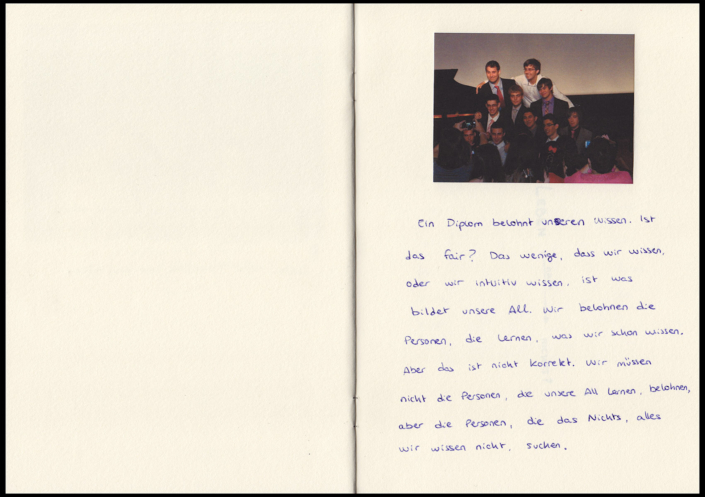 Ein Diplom belohnt unseren wissen. Ist
das fair? Das wenige, dass wir wissen,
oder wir intuitiv wissen, ist was
bildet unsere All. Wir belohnen die
Personen, die Lernen, was wir schon wissen.
Aber das ist nicht korrekt. Wir müssen
nicht die Personen, die unsere All Lernen, belohnen,
aber die Personen, die das Nichts, alles
wir wissen nicht, suchen.